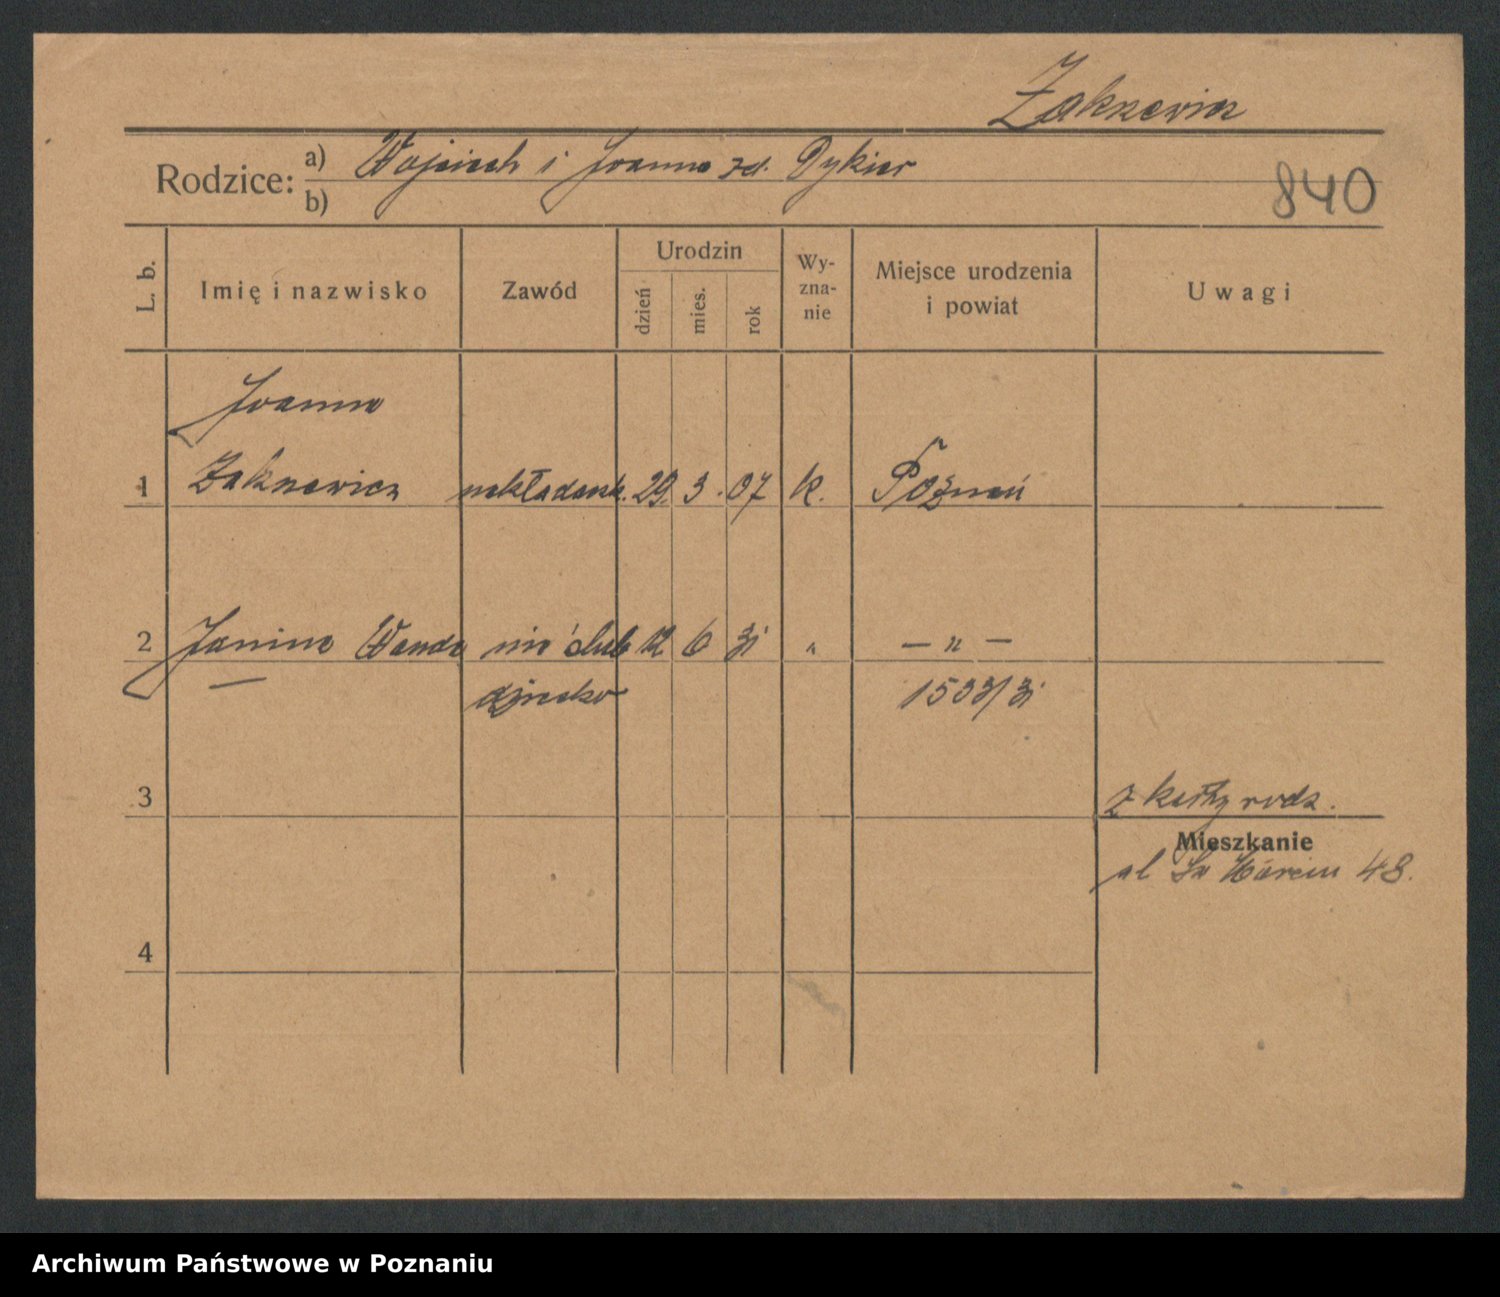 Zakrzewicz
Rodzice: a) Wojciech i Joanna zd. Dykier
b)
840
L. b.
Imię i nazwisko
Zawód
Urodzin
dzień
mies.
rok
Wy-
zna-
nie
Miejsce urodzenia
i powiat
Uwagi
Joanna
1 Zakrzewicz nakładaczk. 29. 3. 07 k. Poznań
2 Janina Wanda nie ślub 12 6 31 " — " —
dziecko 1533/31
3 z karty rodz.
Mieszkanie
ul Św Marcin 48.
4
Archiwum Państwowe w Poznaniu